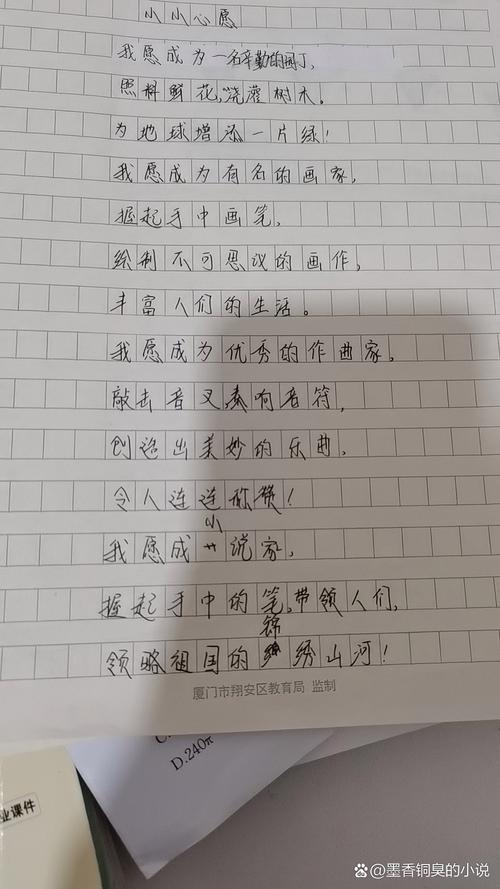 小小心愿
我愿成为一名辛勤的园丁,
照料鲜花,浇灌树木。
为地球增添一片绿!
我愿成为有名的画家,
握起手中画笔,
绘制不可思议的画作,
丰富人们的生活。
我愿成为优秀的作曲家,
敲击音叉,奏响音符,
创造出美妙的乐曲,
令人连连称赞!
我愿成小说家,
握起手中的笔,带领人们,
领略祖国的锦绣山河!
厦门市翔安区教育局 监制
D.240π
业课件
@墨香铜臭的小说